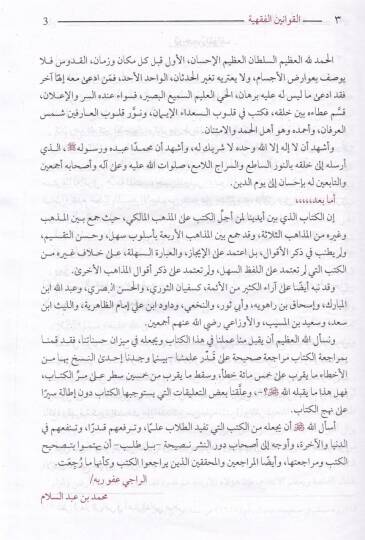 ٣ القوانين الفقهية 3
الحمد لله العظيم السلطان العظيم الإحسان، الأول قبل كل مكان وزمان، القدوس فلا
يوصف بعوارض الأجسام، ولا يعتريه تغير الحدثان، الواحد الأحد، فمَن ادعى معه إلهًا آخر
فقد ادعى ما ليس له عليه برهان، الحي العليم السميع البصير، فسواء عنده السر والإعلان،
قسَّم عطاءه بين خلقه، فكتب في قلوب السعداء الإيمان، ونوَّر قلوب العارفين شمس
العرفان، وأحمده وهو أهل الحمد والامتنان.
وأشهد أن لا إله إلا الله وحده لا شريك له، وأشهد أن محمدًا عبده ورسوله ﷺ، الذي
أرسله إلى خلقه بالنور الساطع والسراج اللامع، صلوات الله عليه وعلى آله وأصحابه أجمعين
والتابعين له بإحسان إلى يوم الدين.
أما بعد،،،،،
إن الكتاب الذي بين أيدينا لمن أجلِّ الكتب على المذهب المالكي، حيث جمع بين المذهب
وغيره من المذاهب الثلاثة، وقد جمع بين المذاهب الأربعة بأسلوب سهل، وحسن التقسيم،
ولم يطنب في ذكر الأقوال، بل اعتمد على الإيجاز، والعبارة السهلة، على خلاف غيره من
الكتب التي لم تعتمد على اللفظ السهل، ولم تعتمد على ذكر أقوال المذاهب الأخرى.
وقد نبه أيضًا على آراء الكثير من الأئمة، كسفيان الثوري، والحسن البصري، وعبد الله ابن
المبارك، وإسحاق بن راهويه، وأبي ثور، والنخعي، وداود ابن علي إمام الظاهرية، والليث ابن
سعد، وسعيد بن المسيب، والأوزاعي رضي الله عنهم أجمعين.
ونسأل الله العظيم أن يقبل منا عملنا في هذا الكتاب ويجعله في ميزان حسناتنا، فقد قمنا
بمراجعة الكتاب مراجعة صحيحة على قَدْر علمنا -بينما وجدنا إحدى النسخ بها من
الأخطاء ما يقرب على خمس مائة خطأ، وسقط ما يقرب من خمسين سطر على مرِّ الكتاب،
فهل هذا ما يقبله الله ﷻ؟-، وعلَّقنا بعض التعليقات التي يستوجبها الكتاب دون إطالة سيرًا
على نهج الكتاب.
أسأل الله ﷻ أن يجعله من الكتب التي تفيد الطلاب علمًا، وترفعهم قدرًا، وتنفعهم في
الدنيا والآخرة، وأوجه إلى أصحاب دور النشر نصيحة -بل طلب- أن يهتموا بتصحيح
الكتب ومراجعتها، وأيضًا المراجعين والمحققين الذين يراجعوا الكتب وكأنها ما رُجِعَت.
الراجي عفو ربه/
محمد بن عبد السلام